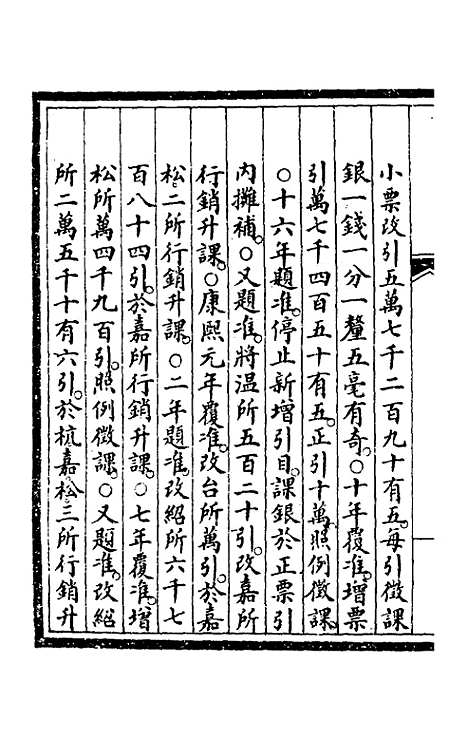 小票改引五萬七千二百九十有五。每引徵課
銀一錢一分一釐五毫有奇。○十年覆准。增票
引萬七千四百五十有五。正引十萬。照例徵課。
○十六年題准。停止新增引目。課銀於正票引
內攤補。○又題准。將温所五百二十引。改嘉所
行銷升課。○康熙元年覆准。改台所萬引。於嘉
松二所行銷升課。○二年題准。改紹所六千七
百八十四引。於嘉所行銷升課。○七年覆准。增
松所萬四千九百引。照例徵課。○又題准。改紹
所二萬五千十有六引。於杭嘉松三所行銷升